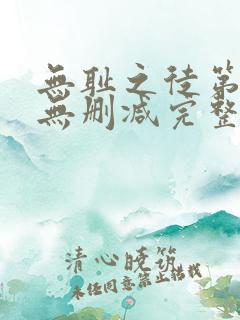 無耻之徒第
無删减完整
清心晚筑
未经同意禁止搭载